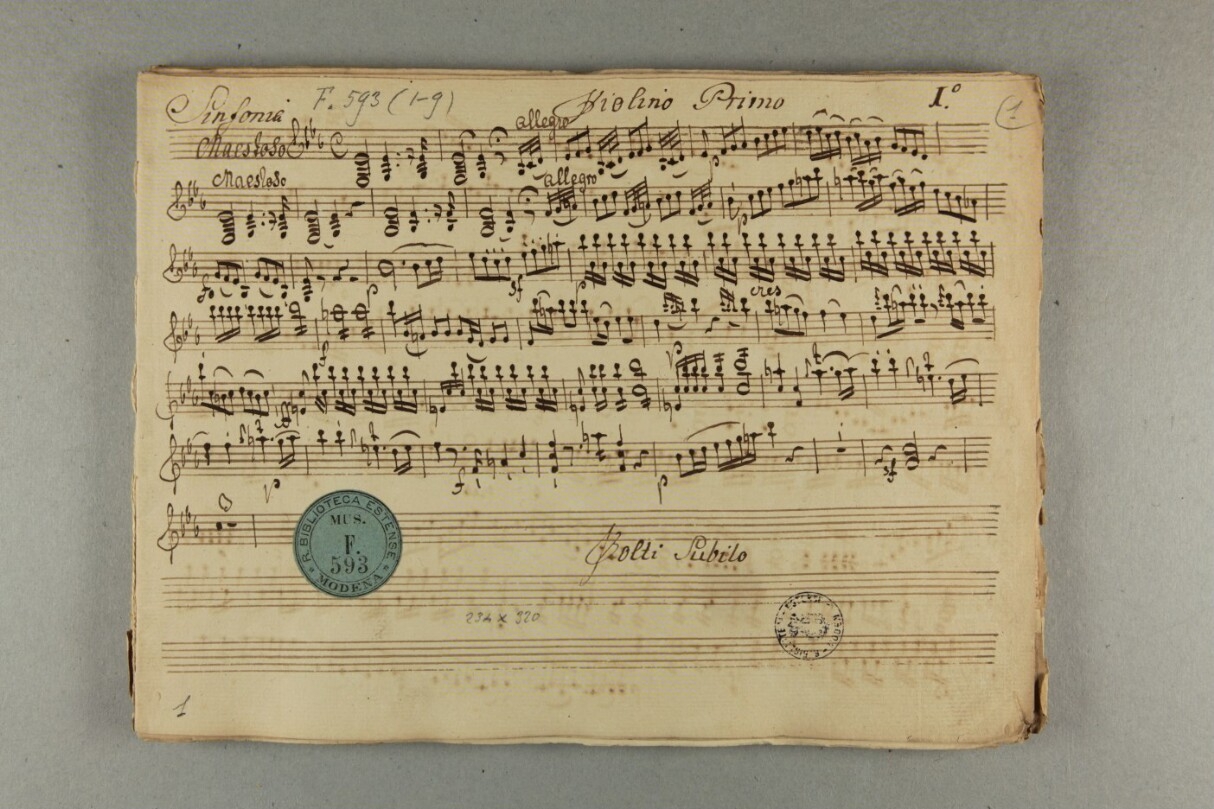 Sinfonia F. 593 (1-9) Violino Primo I.º 1
Maestoso allegro
Maestoso allegro
p p
f p sf p cres
f
p
p f p sf
Volti Subito
R. BIBLIOTECA ESTENSE
MUS.
F.
593
MODENA
234 x 320
1